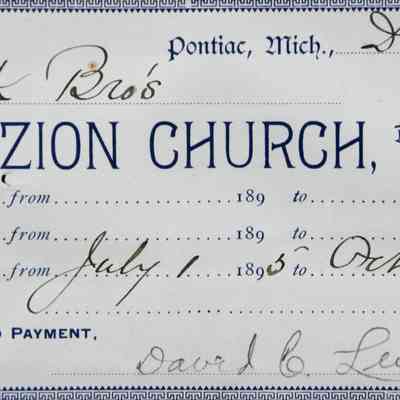 Pontiac, Mich.,
Bro's
ZION CHURCH,
from 189 to
from 189 to
from July 1 1895 to Oct
PAYMENT,
David C.